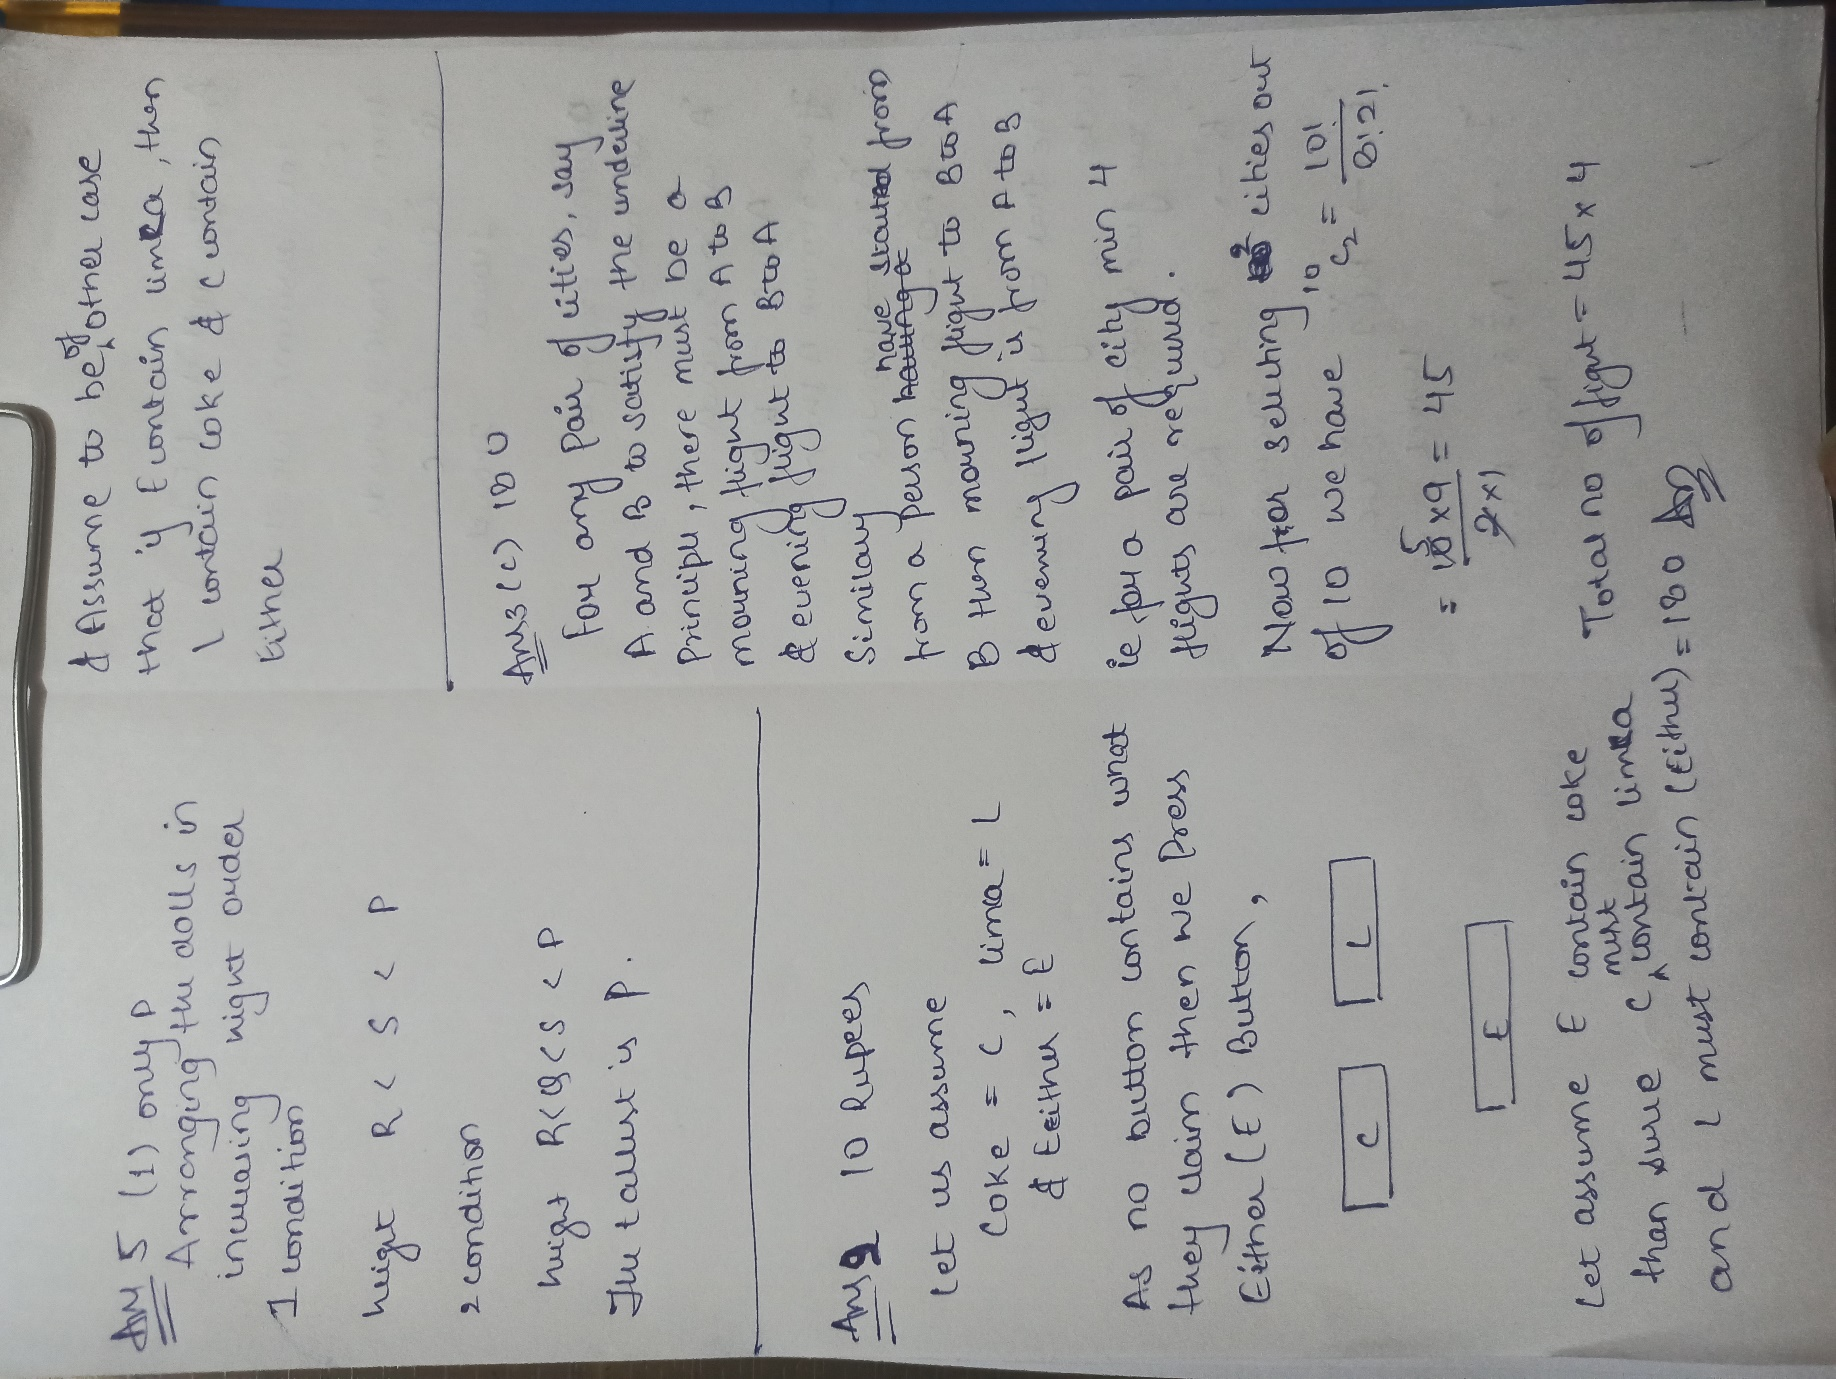 Ans 5 (1) only P
Arranging the dolls in
increasing hight order
1 condition
height R < S < P
2 condition
hight R<Q<S<P
The tallest is P.
Ans 2 10 Rupees
Let us assume
Coke = C, limca = L
& Eeither = E
As no button contains what
they claim then we Press
Either (E) Button,
C L
E
Let assume E contain coke
than sure C must contain limca
and L must contain (Either)
& Assume to be of other case
that if E contain limca, then
L contain coke & C contain
Either
Ans 3 (c) 180
For any Pair of cities, say
A and B to satisfy the underline
Principle, there must be a
mourning flight from A to B
& evening flight to B to A
Similary
from a person have started from
B then mourning flight to B to A
& evening flight is from A to B
ie for a pair of city min 4
flights are required.
Now for selecting 2 cities out
of 10 we have 10 C2 = 10! / 8!2!
= 10 x 9 / 2 x 1 = 45
Total no of flight = 45 x 4
= 180 Ans